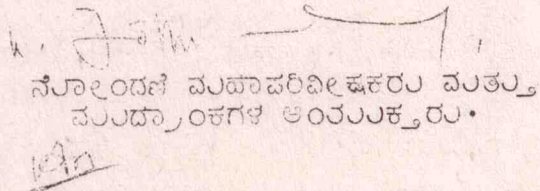 ನೋಂದಣಿ ಮಹಾಪರಿವೀಕ್ಷಕರು ಮತ್ತು
ಮುದ್ರಾಂಕಗಳ ಆಯುಕ್ತರು.